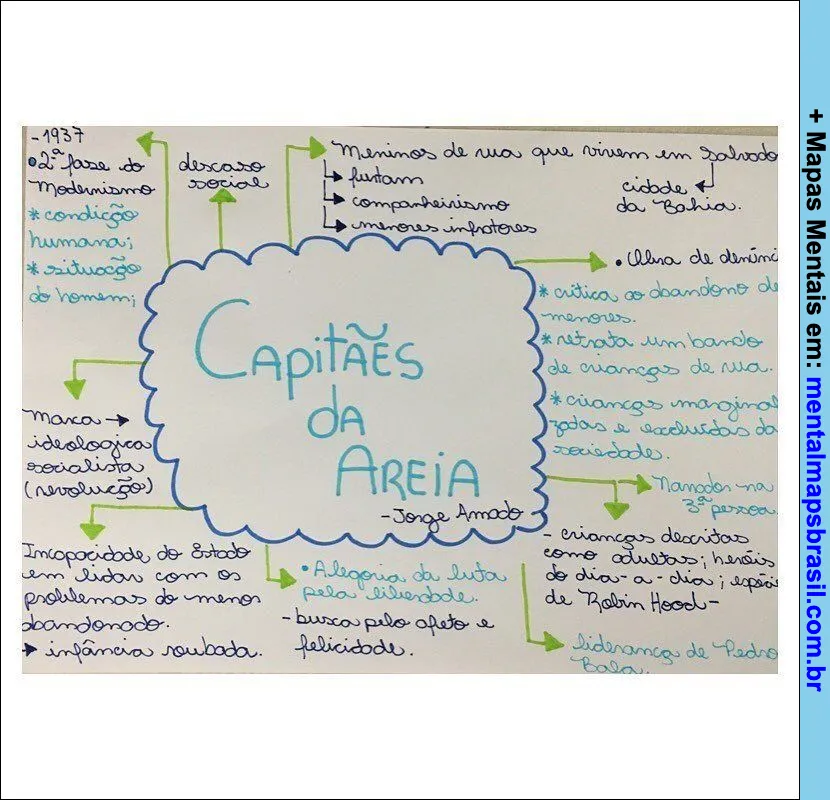 - 1937
• 2ª fase do
Modernismo
* condição
humana;
* situação
do homem;
descaso
social
Meninos de rua que vivem em Salvado
furtam
companheirismo
menores infratores
cidade
da Bahia.
• Obra de denúnci
* crítica ao abandono de
menores.
* retrata um bando
de crianças de rua.
* crianças marginal
zadas e excluídas da
sociedade.
CAPITÃES
DA
AREIA
- Jorge Amado
Marca →
ideologica
socialista
(revolução)
Narrados na
3ª pessoa
- crianças descritas
como adultas; heróis
do dia-a-dia; espéci
de Robin Hood -
Incapacidade do Estado
em lidar com os
problemas do menos
abandonado.
→ infância roubada.
• Alegoria da luta
pela liberdade.
- busca pelo afeto e
felicidade.
liderança de Pedro
Bala.
+ Mapas Mentais em: mentalmapsbrasil.com.br